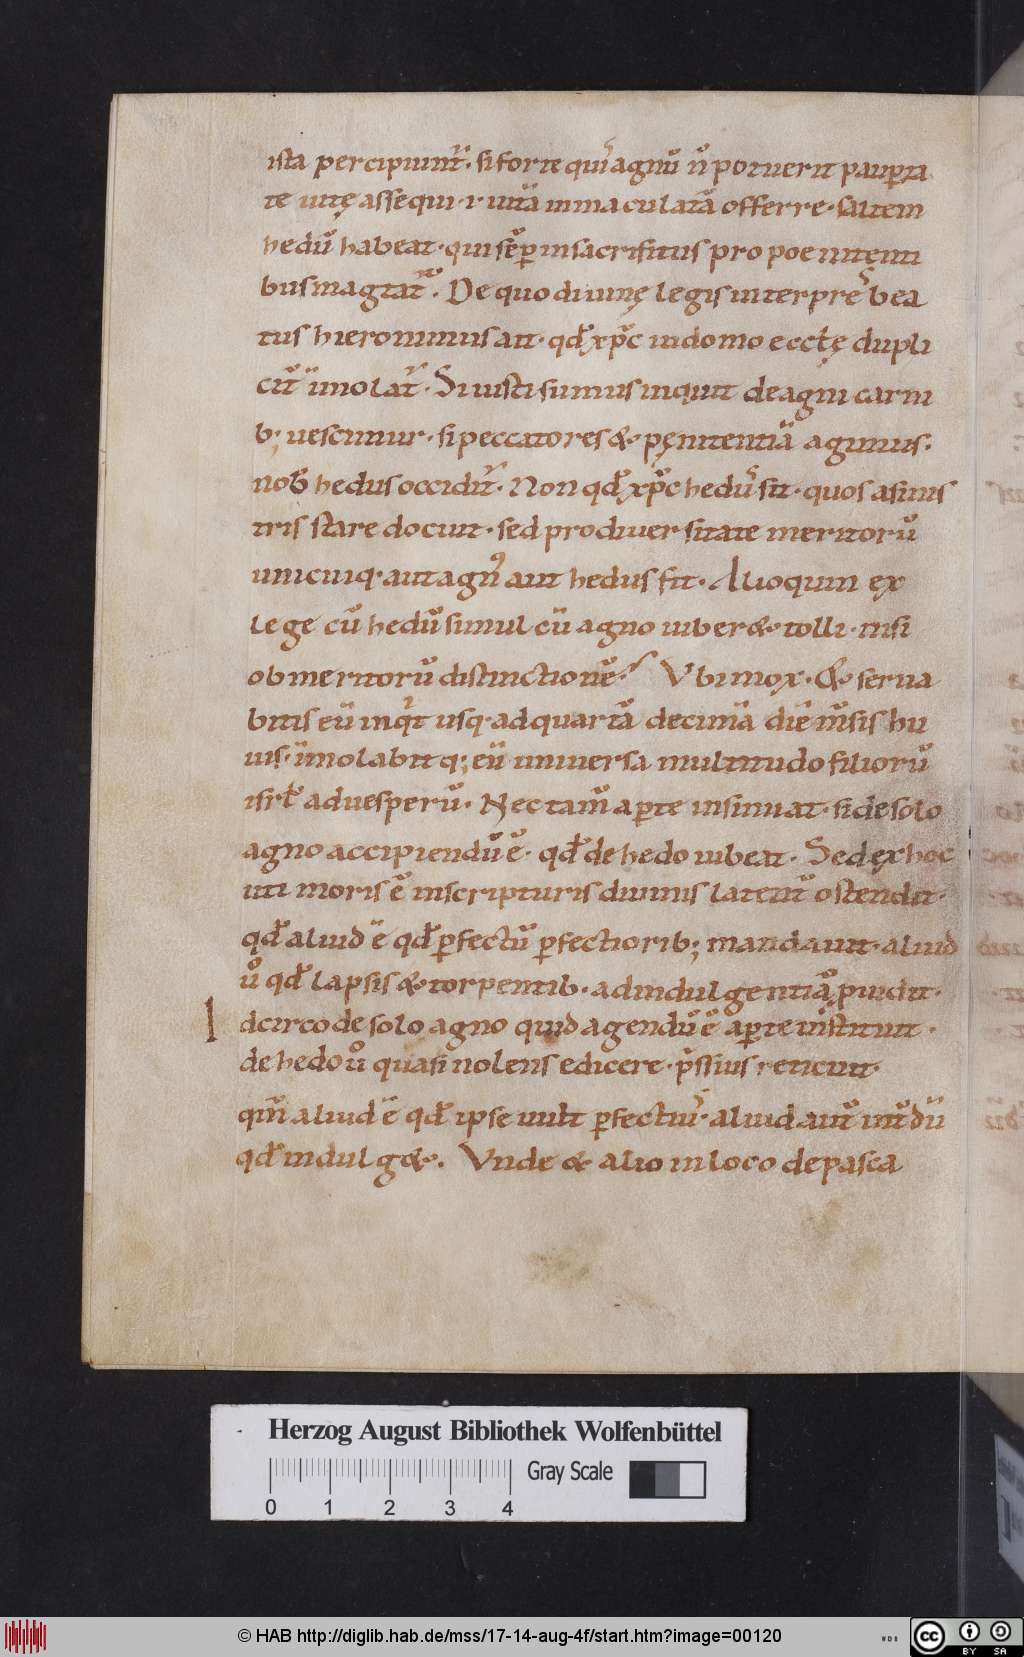 ista percipiunt᷑. si forte qui᷑ agnū n̄ potuerit paup̱ta
te uitę assequi. i. uitā inmaculatā offerre. saltem
hedū habeat. qui sēp̱ in sacrifitiis pro poenitenti
bus magtat᷑. De quo diuinę legis interpre᷑ bea
tus hieronimus ait. qd̄ xp̄c in domo ecclę dupli
cit̄ īmolat᷑. Si iusti sumus inquit de agni carni
b; uescimur. si peccatores & pęnitentiā agimus.
nob̄ hedus occidit᷑. Non qd̄ xp̄c hedu᷑ sit. quos a sinis
tris stare docuit. sed pro diuersitate meritorū
unicuiq. aut agn᷒ aut hedus fit. Alioquin ex
lege cū hedū simul cū agno iuber& tolli. nisi
ob meritorū distinctionē. Vbi mox. & serua
bitis eū inqͥt usq. ad quartā decimā diē m̄sis hu
ius. īmolabitq; eū uniuersa multitudo filiorū
isrl̄ ad uesperū. Nec tam̄ ap̱te insinuat. si de solo
agno accipiendū ē. qd̄ de hedo iubeat. Sed ęx hoc
uti moris ē in scripturis diuinis latent̄ ostendit.
qd̄ aliud ē qd̄ p̱fectū p̱fectiorib; mandauit. aliud
ū qd̄ lapsis & torpentib. ad indulgentiā p̱uidit.
Idcirco de solo agno quid agendū ē ap̱te instituit.
de hedo ū quasi nolens edicere. p̄ssius reticuit.
qm̄ aliud ē qd̄ ipse uult p̱fectiu᷑. aliud aut̄ int̄dū
qd̄ indulg&. Vnde & alio in loco de pasca
Herzog August Bibliothek Wolfenbüttel
Gray Scale
0 1 2 3 4
© HAB http://diglib.hab.de/mss/17-14-aug-4f/start.htm?image=00120
WDB
cc BY SA